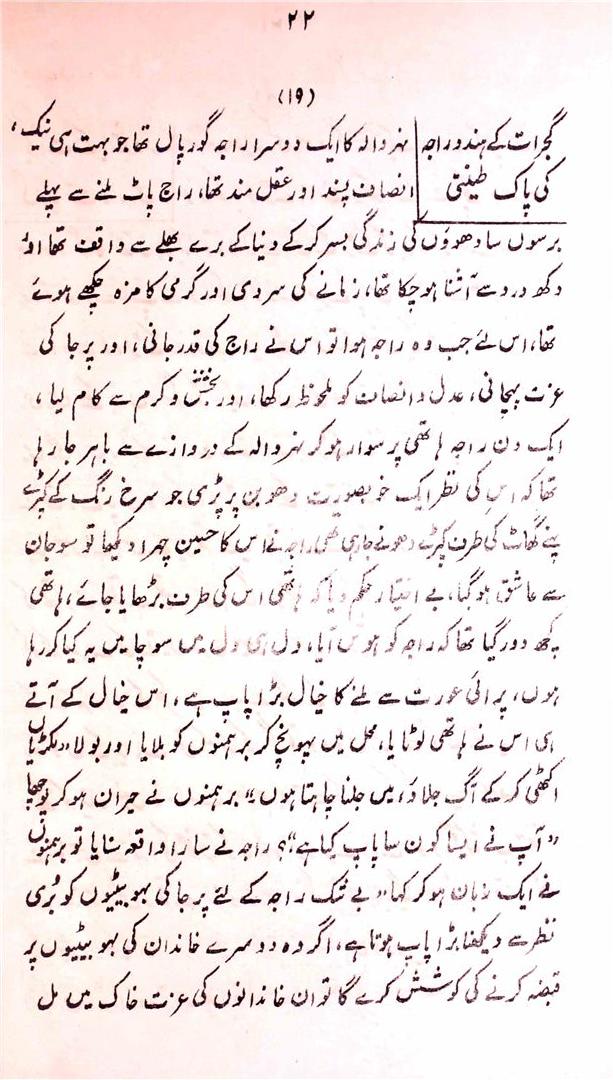 ۲۲
(۱۹)
گجرات کے ہندو راجہ
کی پاک طینتی
نہر والہ کا ایک دوسرا راجہ گور پال تھا جو بہت ہی نیک،
انصاف پسند اور عقل مند تھا، راج پاٹ ملنے سے پہلے
برسوں سادھوؤں کی زندگی بسر کر کے دنیا کے برے بھلے سے واقف تھا اور
دکھ درد سے آشنا ہو چکا تھا، زمانے کی سردی اور گرمی کا مزہ چکھے ہوئے
تھا، اس لئے جب وہ راجہ ہوا تو اس نے راج کی قدر جانی، اور پرجا کی
عزت پہچانی، عدل و انصاف کو ملحوظ رکھا، اور بخشش و کرم سے کام لیا،
ایک دن راجہ ہاتھی پر سوار ہو کر نہر والہ کے دروازے سے باہر جا رہا
تھا کہ اس کی نظر ایک خوبصورت دھوبن پر پڑی جو سرخ رنگ کے کپڑے
پہنے گھاٹ کی طرف کپڑے دھونے جا رہی تھی، راجہ نے اس کا حسین چہرا دیکھا تو سو جان
سے عاشق ہو گیا، بے اختیار حکم دیا کہ ہاتھی اس کی طرف بڑھایا جائے، ہاتھی
کچھ دور گیا تھا کہ راجہ کو ہوش آیا، دل ہی دل میں سوچا میں یہ کیا کر رہا
ہوں، پرائی عورت سے ملنے کا خیال بڑا پاپ ہے، اس خیال کے آتے
ہی اس نے ہاتھی لوٹایا، محل میں پہونچ کر برہمنوں کو بلایا اور بولا "لکڑیاں
اکٹھی کر کے آگ جلاؤ، میں جلنا چاہتا ہوں" برہمنوں نے حیران ہو کر پوچھا
"آپ نے ایسا کون سا پاپ کیا ہے"؟ راجہ نے سارا واقعہ سنایا تو برہمنوں
نے ایک زبان ہو کر کہا "بے شک راجہ کے لئے پرجا کی بہو بیٹیوں کو بُری
نظر سے دیکھنا بڑا پاپ ہوتا ہے، اگر وہ دوسرے خاندان کی بہو بیٹیوں پر
قبضہ کرنے کی کوشش کرے گا تو ان خاندانوں کی عزت خاک میں مل